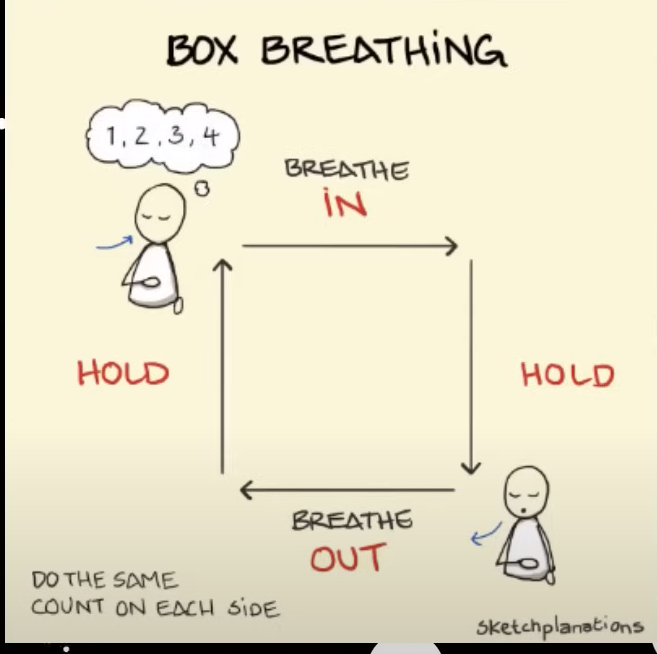 BOX BREATHING
1, 2, 3, 4
BREATHE
IN
HOLD
HOLD
BREATHE
OUT
DO THE SAME
COUNT ON EACH SIDE
sketchplanations